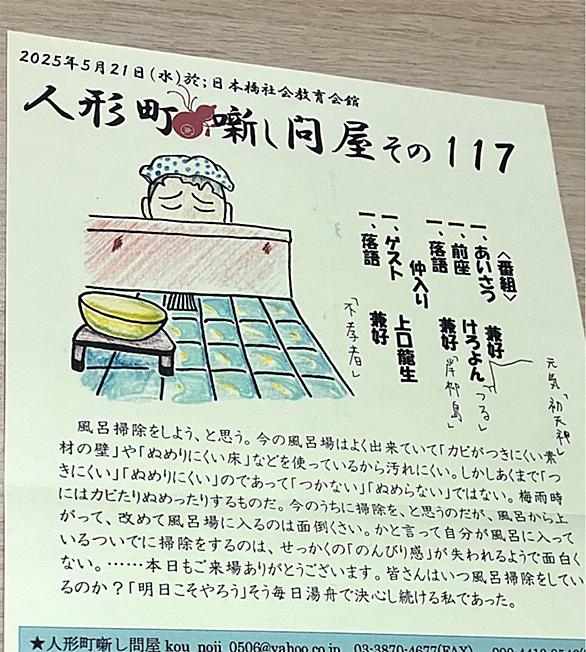 2025年5月21日(水)於;日本橋社会教育会館
人形町噺し問屋その117
〈番組〉
一、あいさつ 兼好
一、前座 けろよん
一、落語 兼好
仲入り
一、ゲスト 上口龍生
一、落語 兼好
元気「初天神」
「つる」
「岸柳島」
「不孝者」
風呂掃除をしよう、と思う。今の風呂場はよく出来ていて「カビがつきにくい素
材の壁」や「ぬめりにくい床」などを使っているから汚れにくい。しかしあくまで「つ
きにくい」「ぬめりにくい」のであって「つかない」「ぬめらない」ではない。梅雨時
にはカビたりぬめったりするものだ。今のうちに掃除を、と思うのだが、風呂から上
がって、改めて風呂場に入るのは面倒くさい。かと言って自分が風呂に入って
いるついでに掃除をするのは、せっかくの「のんびり感」が失われるようで面白く
ない。……本日もご来場ありがとうございます。皆さんはいつ風呂掃除をしてい
るのか?「明日こそやろう」そう毎日湯舟で決心し続ける私であった。
★人形町噺し問屋 kou_noji_0506@yahoo.co.jp 03-3870-4677(FAX)